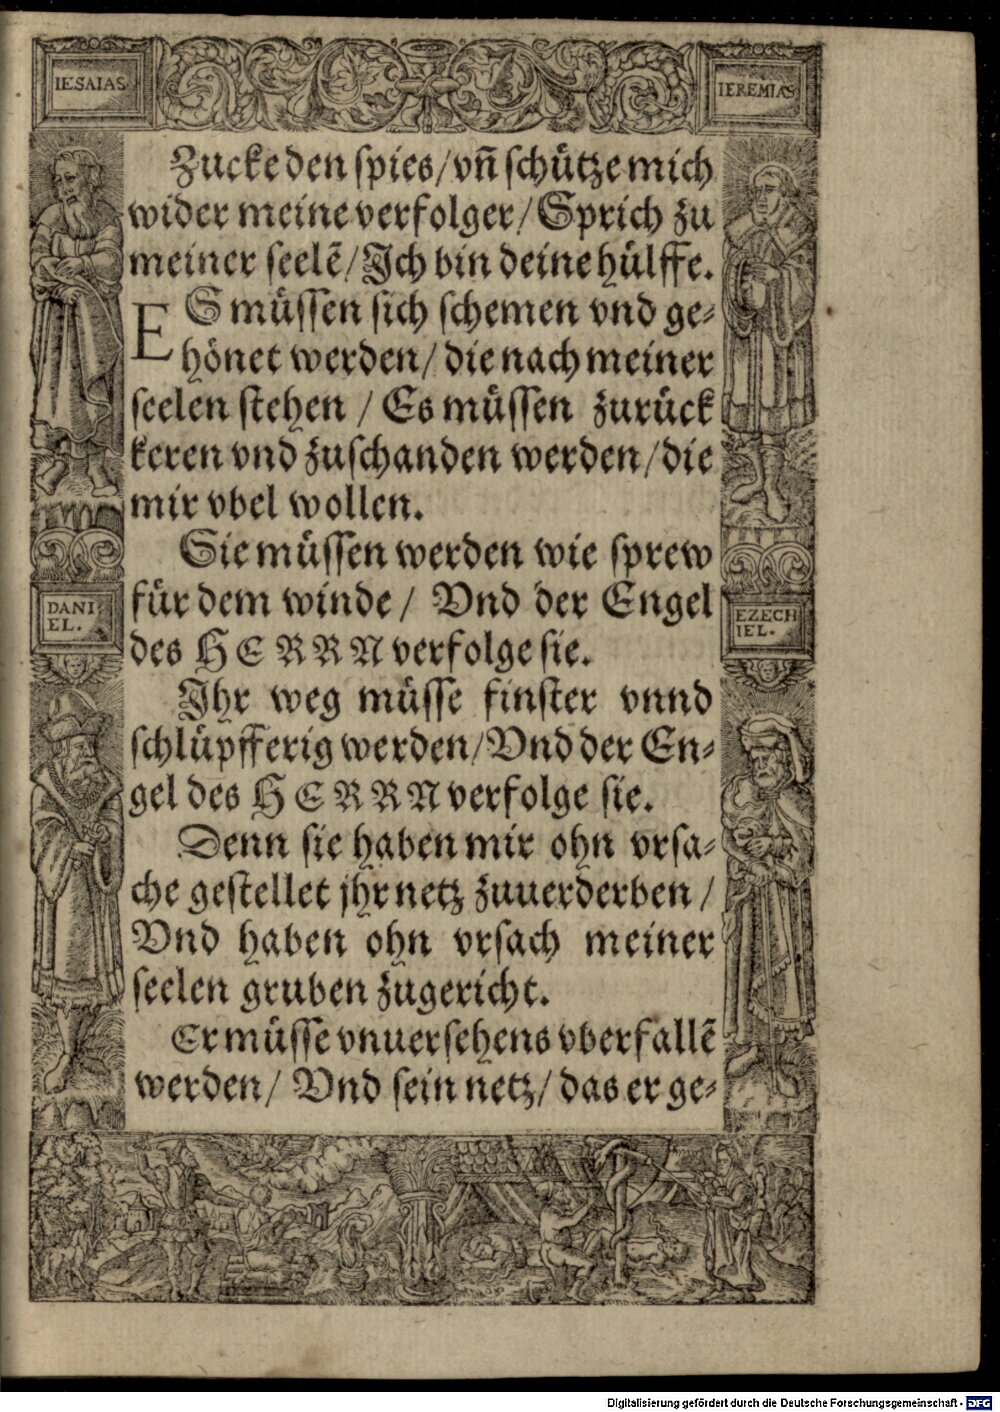 IESAIAS
IEREMIAS
Zucke den spies/ vn̄ schütze mich
wider meine verfolger/ Sprich zu
meiner seelē/ Ich bin deine hülffe.
ES müssen sich schemen vnd ge-
hönet werden/ die nach meiner
seelen stehen / Es müssen zurück
keren vnd zuschanden werden/ die
mir vbel wollen.
Sie müssen werden wie sprew
für dem winde / Vnd der Engel
des HERRN verfolge sie.
Ihr weg müsse finster vnnd
schlüpfferig werden/ Vnd der En-
gel des HERRN verfolge sie.
Denn sie haben mir ohn vrsa-
che gestellet jhr netz zuuerderben /
Vnd haben ohn vrsach meiner
seelen gruben zugericht.
Er müsse vnuersehens vberfallē
werden/ Vnd sein netz/ das er ge-
DANI
EL.
EZECH
IEL.
Digitalisierung gefördert durch die Deutsche Forschungsgemeinschaft - DFG